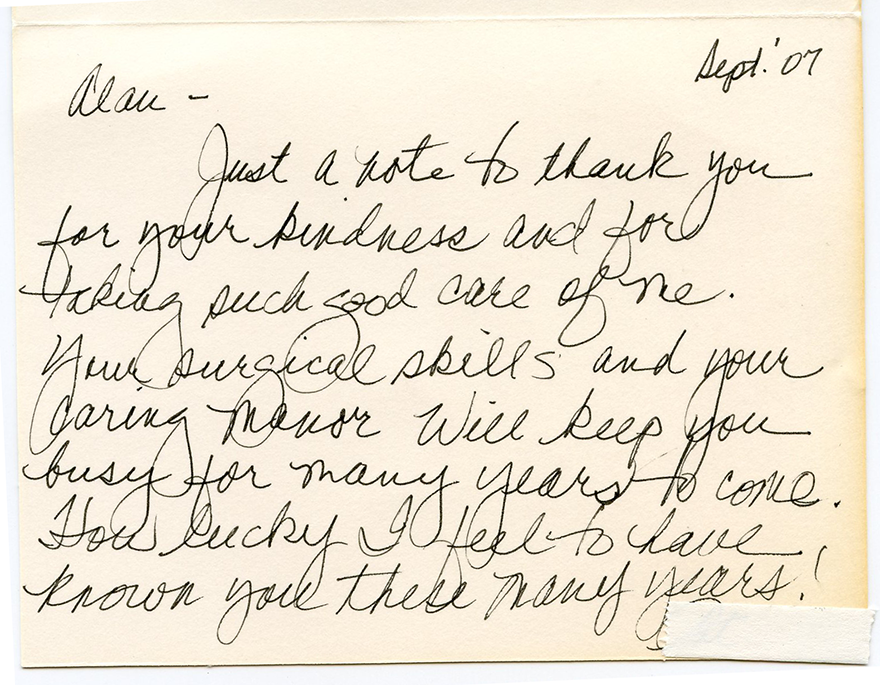 Sept.' 07
Alan -
Just a note to thank you
for your kindness and for
taking such good care of me.
Your surgical skills and your
caring manor will keep you
busy for many years to come.
How lucky I feel to have
known you these many years!